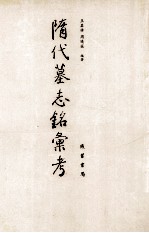 王其禕 周曉薇 編著
綫裝書局
隋代墓志銘彙考